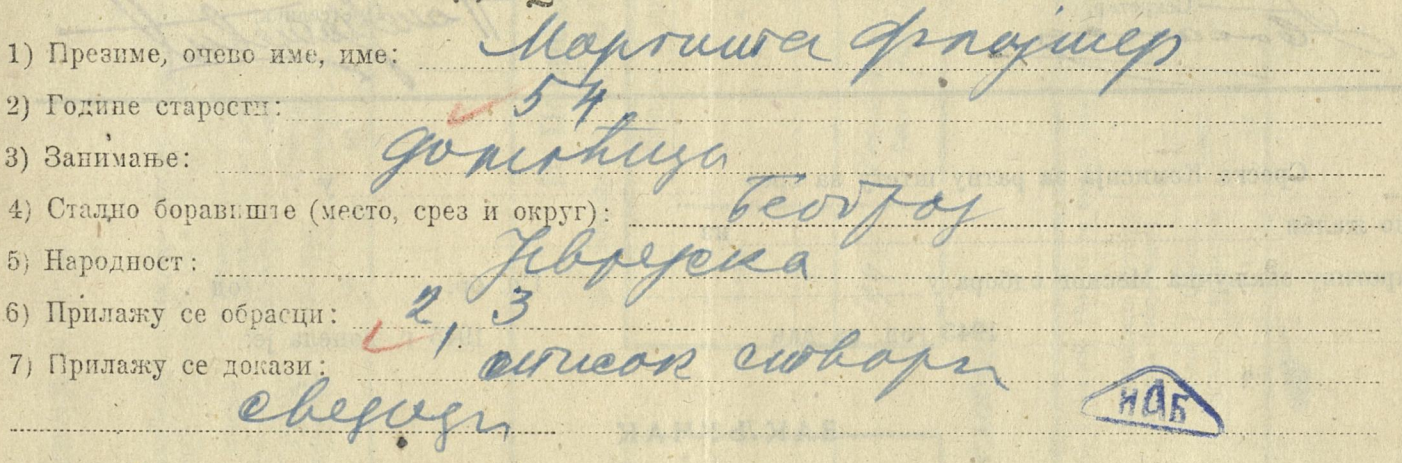 1) Презиме, очево име, име: Маргита Флајшер
2) Године старости: 54
3) Занимање: домаћица
4) Стално боравиште (место, срез и округ): Београд
5) Народност: Јеврејска
6) Прилажу се обрасци: 2, 3
7) Прилажу се докази: списак ствари
сведоци
ИАБ